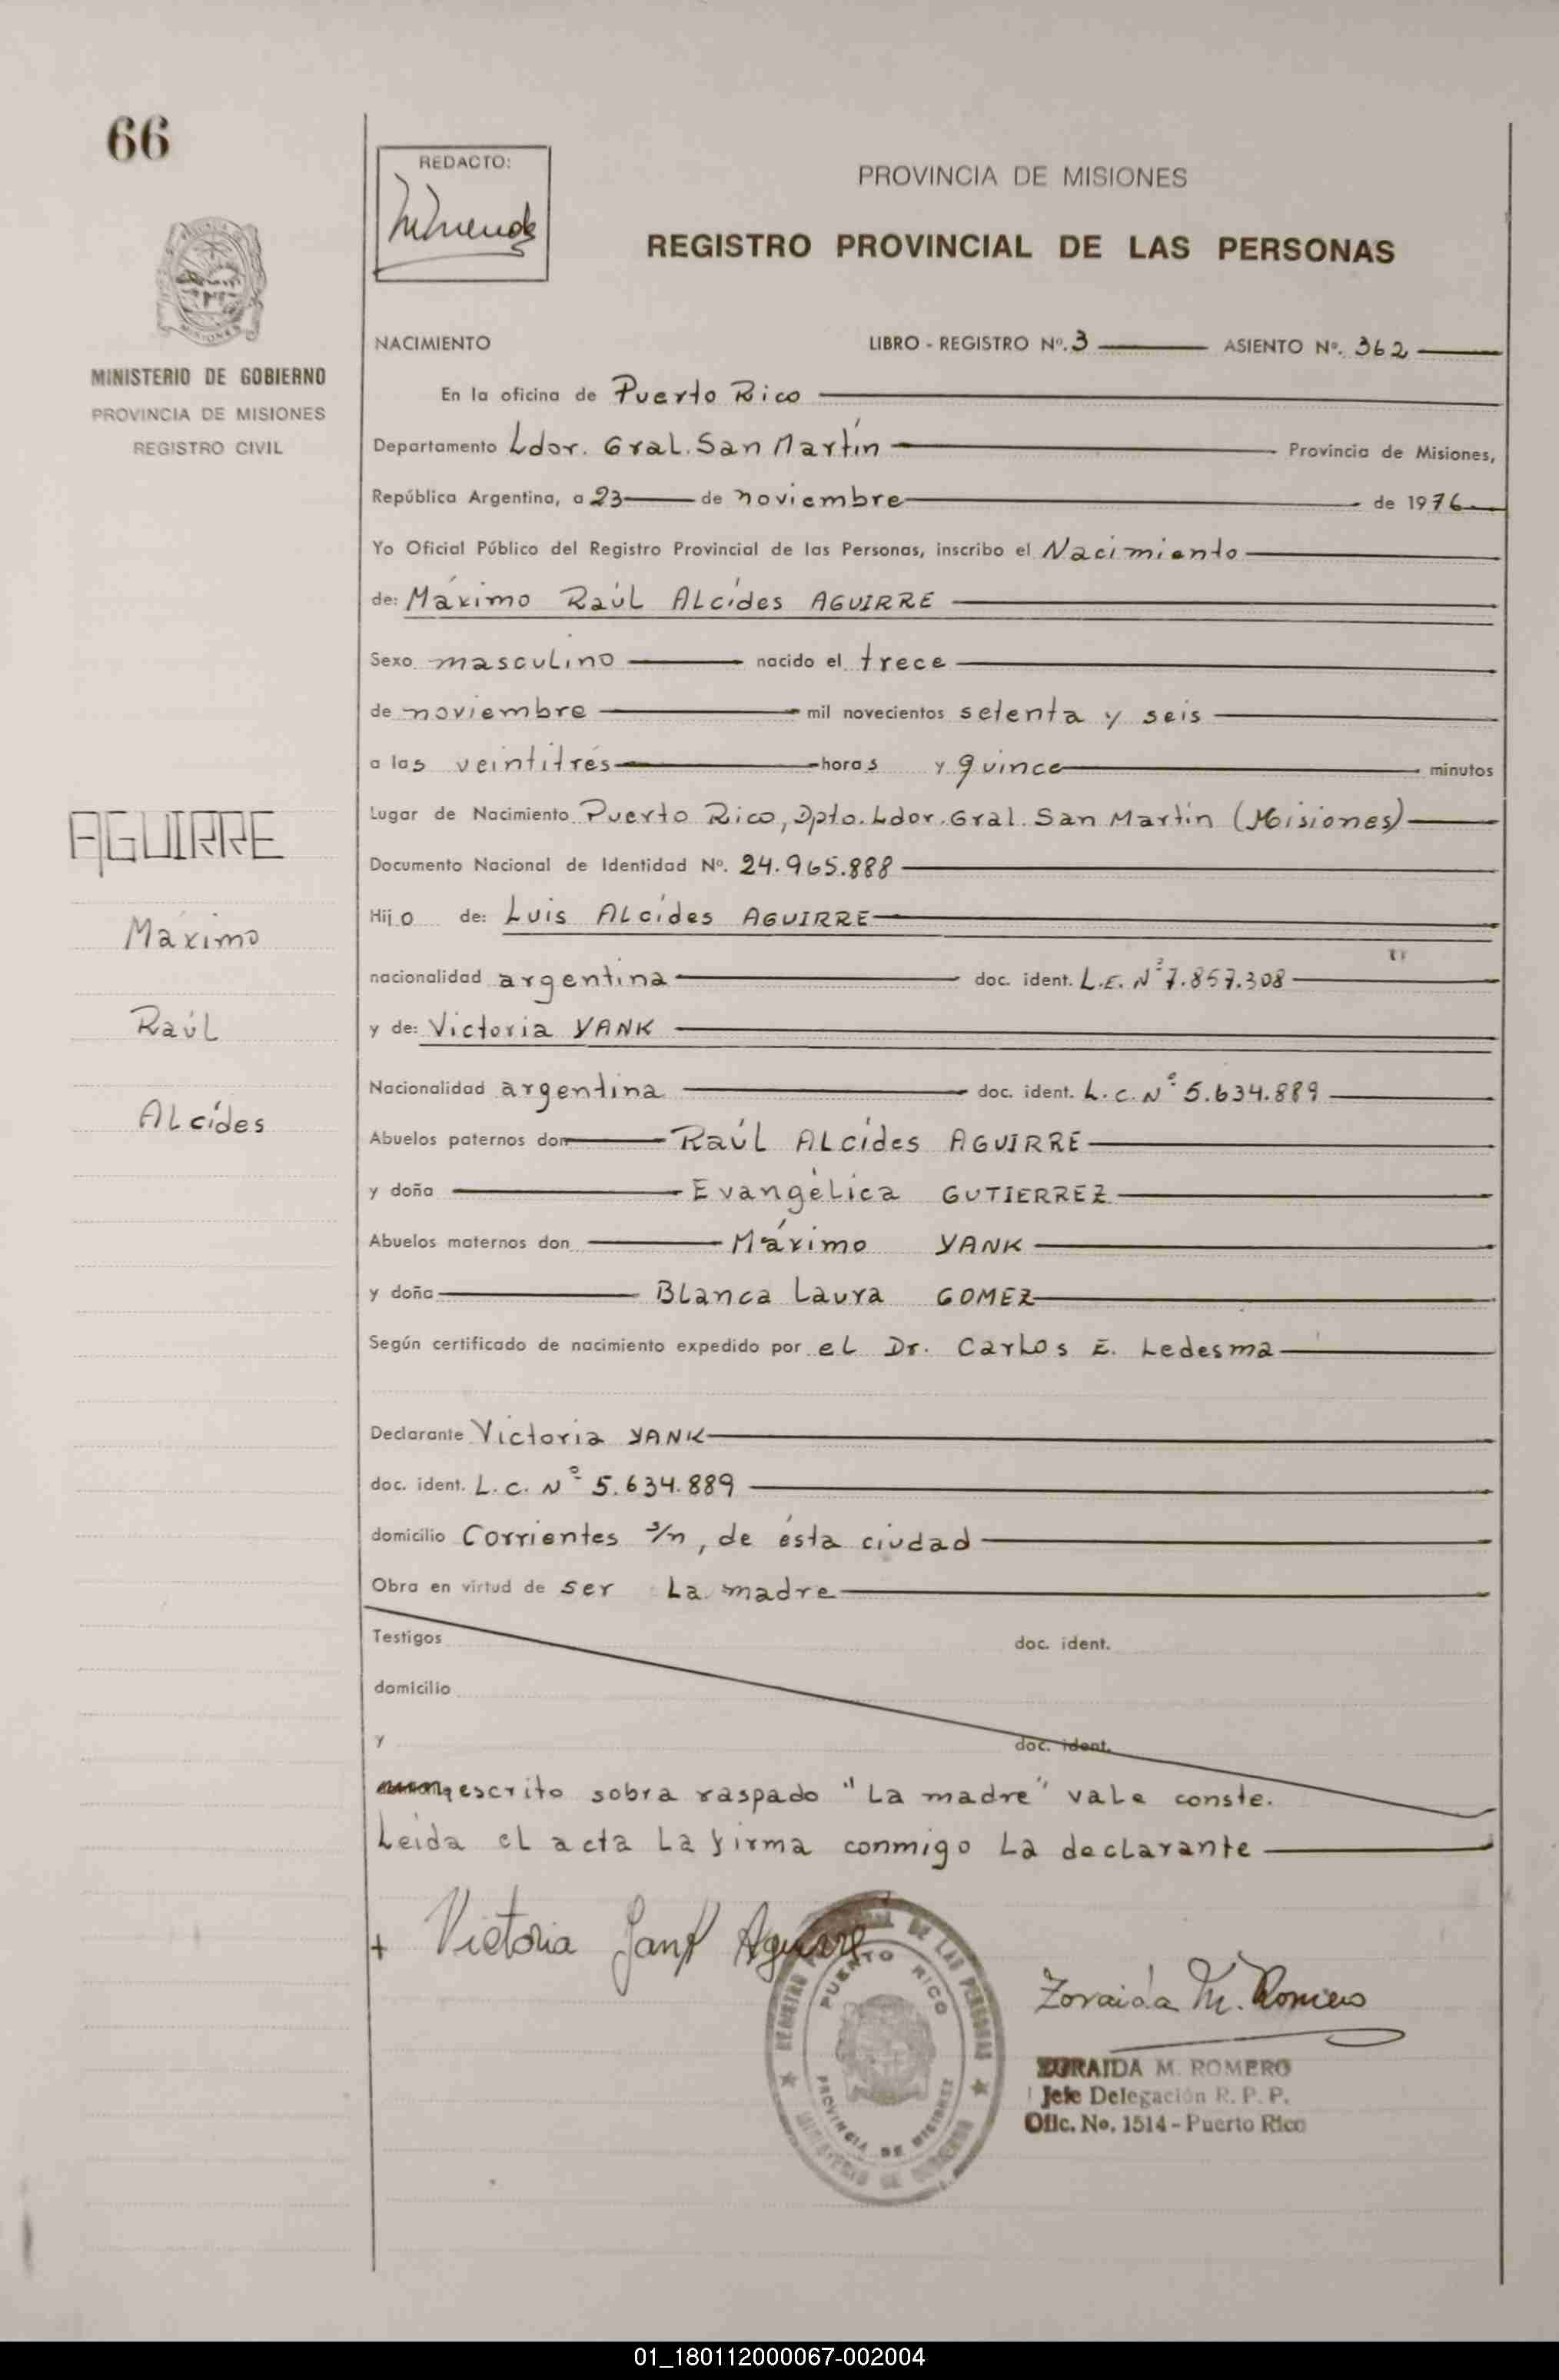 66
REDACTO:
PROVINCIA DE MISIONES
REGISTRO PROVINCIAL DE LAS PERSONAS
MISIONES
MINISTERIO DE GOBIERNO
PROVINCIA DE MISIONES
REGISTRO CIVIL
NACIMIENTO LIBRO - REGISTRO Nº. 3 ASIENTO Nº. 362
En la oficina de Puerto Rico
Departamento Ldor. Gral. San Martín Provincia de Misiones,
República Argentina, a 23 de noviembre de 1976
Yo Oficial Público del Registro Provincial de las Personas, inscribo el Nacimiento
de: Máximo Raúl Alcídes AGUIRRE
Sexo masculino nacido el trece
de noviembre mil novecientos setenta y seis
a las veintitrés horas y quince minutos
Lugar de Nacimiento Puerto Rico, Dpto. Ldor. Gral. San Martín (Misiones)
Documento Nacional de Identidad Nº. 24.965.888
Hijo de: Luis Alcídes AGUIRRE
nacionalidad argentina doc. ident. L.E. Nº 7.857.308
y de: Victoria YANK
Nacionalidad argentina doc. ident. L.C. Nº 5.634.889
Abuelos paternos don Raúl Alcídes AGUIRRE
y doña Evangélica GUTIERREZ
Abuelos maternos don Máximo YANK
y doña Blanca Laura GOMEZ
Según certificado de nacimiento expedido por el Dr. Carlos E. Ledesma
Declarante Victoria YANK
doc. ident. L.C. Nº 5.634.889
domicilio Corrientes s/n, de ésta ciudad
Obra en virtud de ser La madre
Testigos doc. ident.
domicilio
y doc. ident.
escrito sobra raspado "La madre" vale conste.
Leída el acta La firma conmigo La declarante
AGUIRRE
Máximo
Raúl
Alcídes
+ Victoria Jank Aguirre
REGISTRO PROVINCIAL DE LAS PERSONAS
PUERTO RICO
PROVINCIA DE MISIONES
MINISTERIO DE GOBIERNO
Zoraida M. Romero
ZORAIDA M. ROMERO
Jefe Delegación R. P. P.
Ofic. No. 1514 - Puerto Rico
01_180112000067-002004